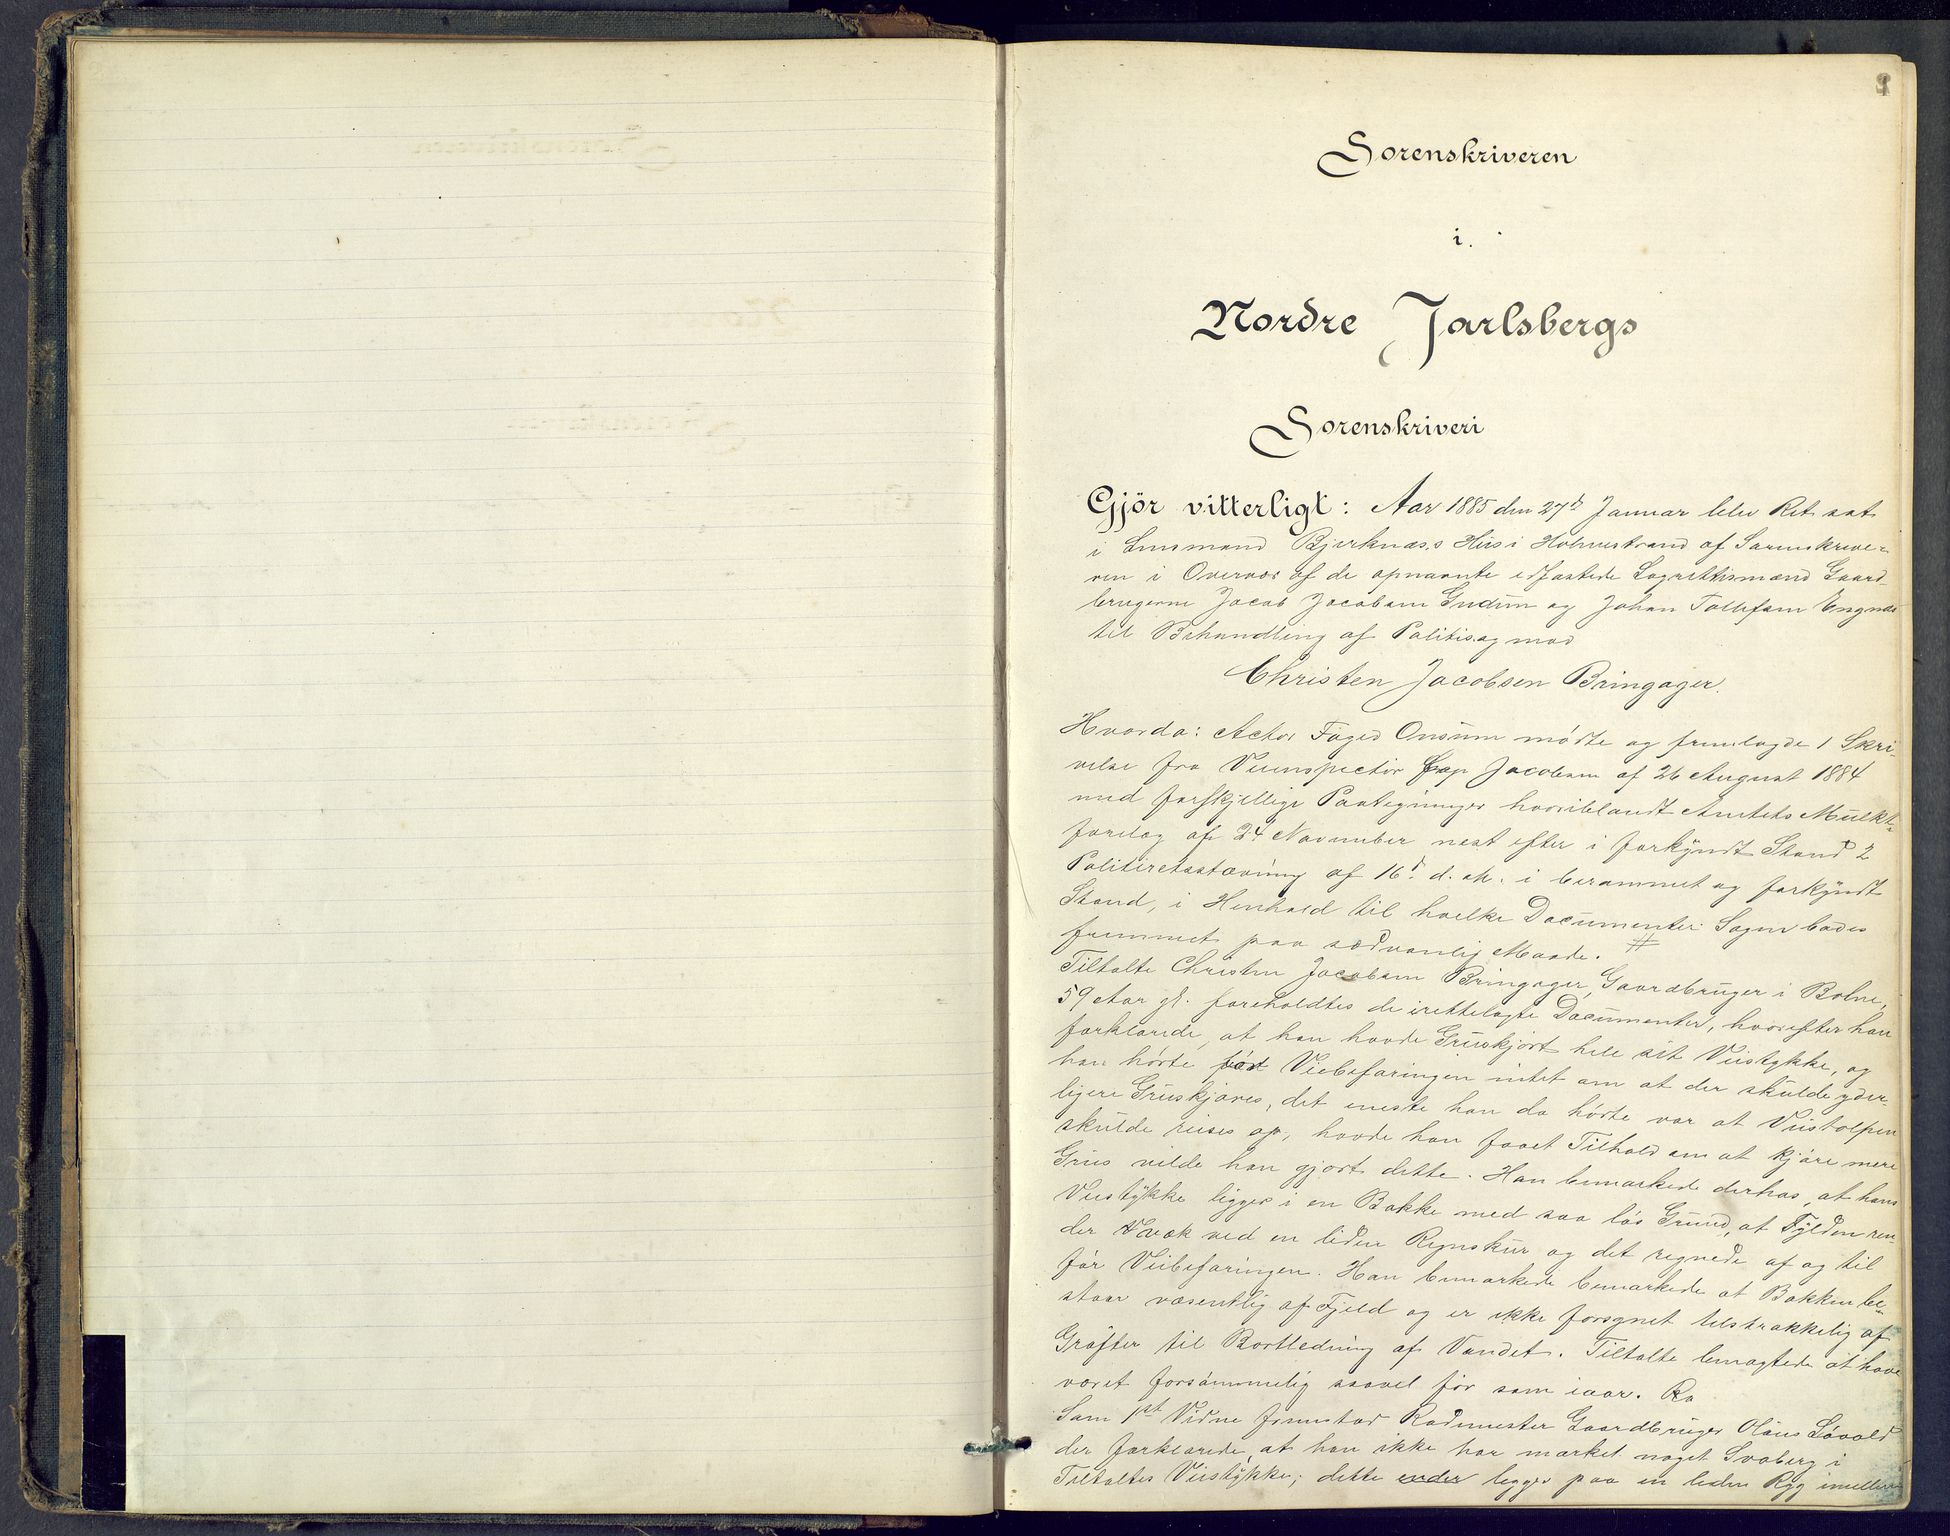 1
Sorenskriveren
i.
Nordre Jarlsbergs
Sorenskriveri
Gjör vitterligt: Aar 1885 den 27d Januar blev Ret sat
i Lensmand Bjerknæs,s Hus i Holmestrand af Sorenskrive-
ren i Overvær af de opnævnte edfæstede Lagrettesmænd Gaard-
brugerne Jacob Jacobsen Gudum og Johan Tollefsen
til Behandling af Politisag mod
Christen Jacobsen Bringager.
Hvorda: Actor Foged Onsum mödte og fremlagde 1 Skri-
velse fra Veiinspectör Jacobsen af 26 August 1884
med forskjellige Paategninger hvoriblandt Amtets Mulkt-
forelæg af 24 November næst efter i forkyndt Stand 2
Politiretsstævning af 16d d. M. i berammet og forkyndt
Stand, i Henhold til hvilke Documenter Sagen bades
fremmet paa sædvanlig Maade. #
Tiltalte Christen Jacobsen Bringager, Gaardbruger i Bolne,
59 Aar gl. foreholdtes de irettelagte Documenter, hvorefter han
forklarede, at han havde Gruskjört hele sit Veistykke, og
han hörte för Veibefaringen intet om at der skulde yder-
ligere Gruskjöres, det eneste han da hörte var at Veistolpen
skulde reises op, havde han faaet Tilhold om at kjöre mere
Grus vilde han gjort dette. Han bemærkede derhos, at hans
Veistykke ligger i en Bakke med saa lös Grund, at Fylden ren-
der Væk ved en liden Regnskur og det regnede af og til
för Veibefaringen. Han bemærkede bemærkede at Bakken be-
staar væsentlig af Fjeld og er ikke forsynet tilstrækkelig af
Gröfter til Bortledning af Vandet. Tiltalte benægtede at have
været forsömmelig saavel för som iaar. Ra
Som 1st Vidne fremstod Rodemester Gaardbruger Olaus Lövold
der forklarede, at han ikke har mærket noget Svaberg i
Tiltaltes Veistykke; dette ligger paa en liden Ryg imellem